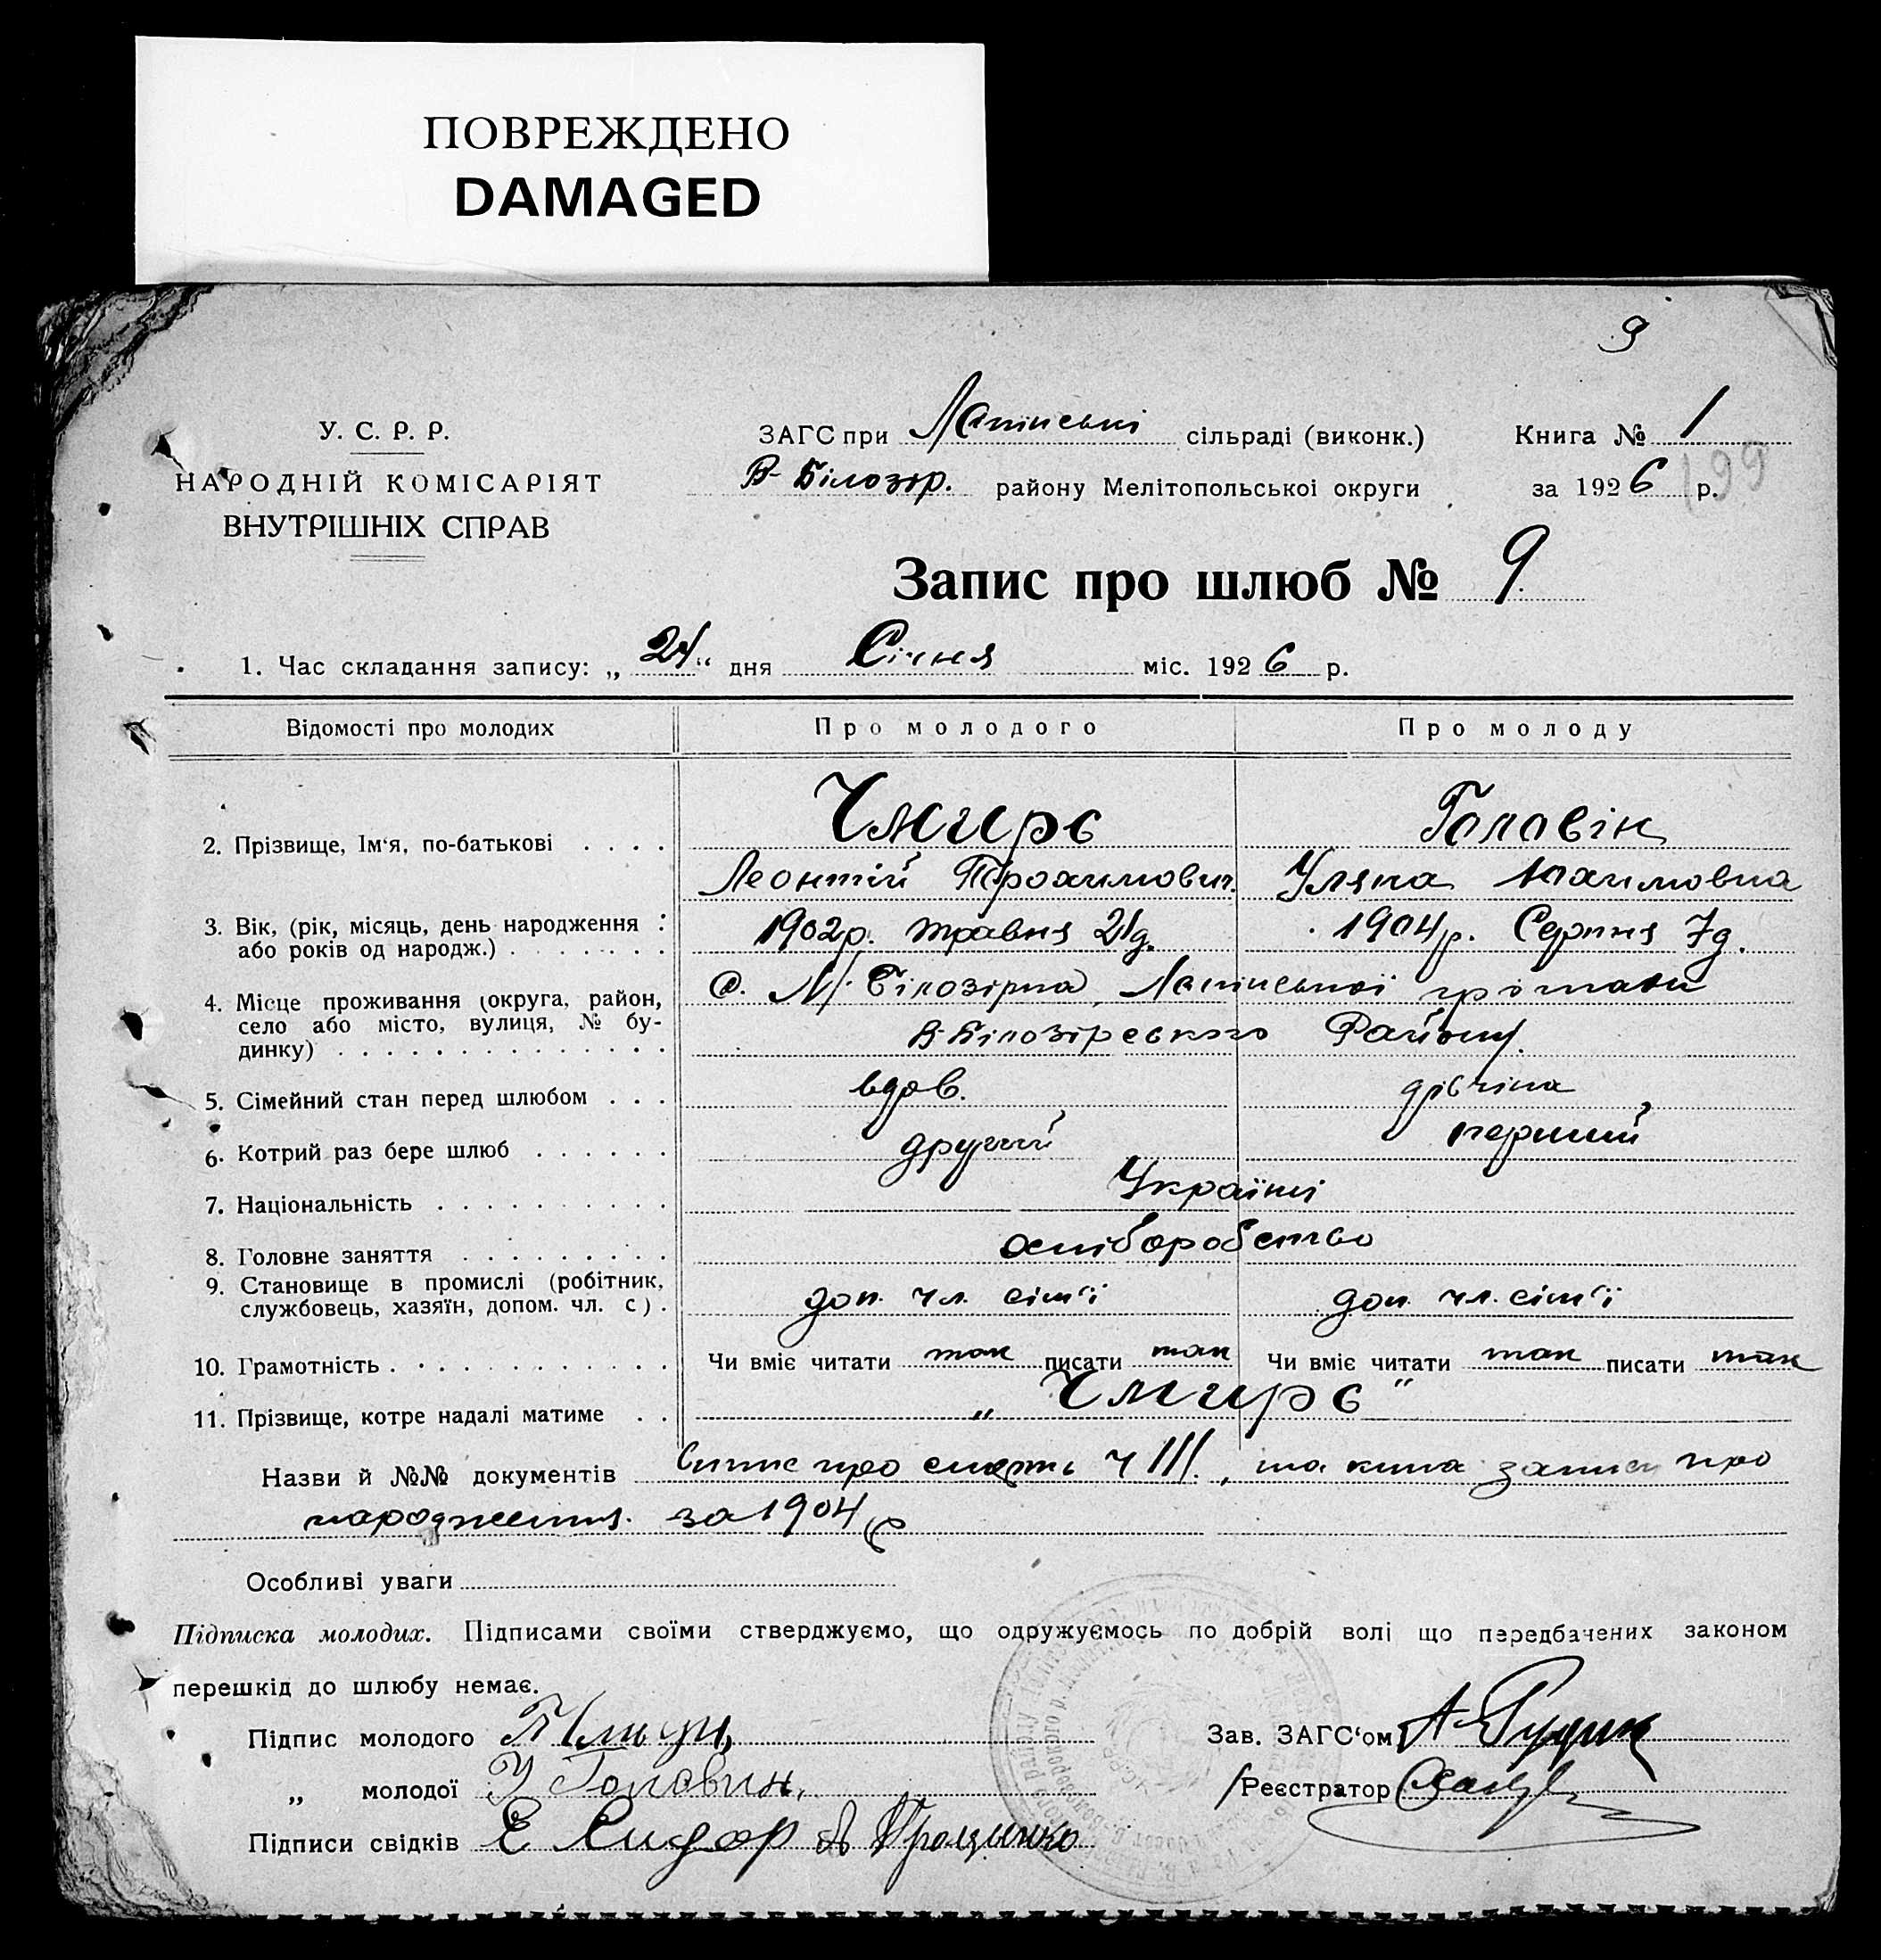 ПОВРЕЖДЕНО
DAMAGED
9
У. С. Р. Р.
НАРОДНІЙ КОМІСАРІЯТ
ВНУТРІШНІХ СПРАВ
ЗАГС при Лапінські сільраді (виконк.) Книга № 1
В-Білозір. району Мелітопольської округи за 1926 р. 199
Запис про шлюб № 9.
1. Час складання запису: „24“ дня Січня міс. 1926 р.
Відомості про молодих Про молодого Про молоду
2. Прізвище, Ім‘я, по-батькові . . . . Чмирь Головін
Леонтій Трохимович. Уляна Юхимовна
3. Вік, (рік, місяць, день народження : 1902р. травня 21д. 1904р. Серпня 7д.
або років од народж.) . . . . . . .
4. Місце проживання (округа, район, с. М-Білозірка, Лапінської громади
село або місто, вулиця, № бу-
динку) . . . . . . . . . . . . . . В-Білозірського Району.
5. Сімейний стан перед шлюбом . . . вдов. дівчіна
6. Котрий раз бере шлюб . . . . . . другий перший
7. Національність . . . . . . . . . . Українці
8. Головне заняття . . . . . . . . . хліборобство
9. Становище в промислі (робітник,
службовець, хазяїн, допом. чл. с). доп. чл. сім‘ї доп. чл. сім‘ї
10. Грамотність . . . . . . . . . . . . Чи вміє читати так писати так Чи вміє читати так писати так
11. Прізвище, котре надалі матиме . . „Чмирь“
Назви й №№ документів Випис про смерть ч III., та книга записи про
народження за 1904 р
Особливі уваги
Підписка молодих. Підписами своїми стверджуємо, що одружуємось по добрій волі що передбачених законом
перешкід до шлюбу немає.
Підпис молодого
Зав. ЗАГС‘ом А Рудик
„ молодої У Головин.
Реєстратор
Підписи свідків Е Сидор А Проценко